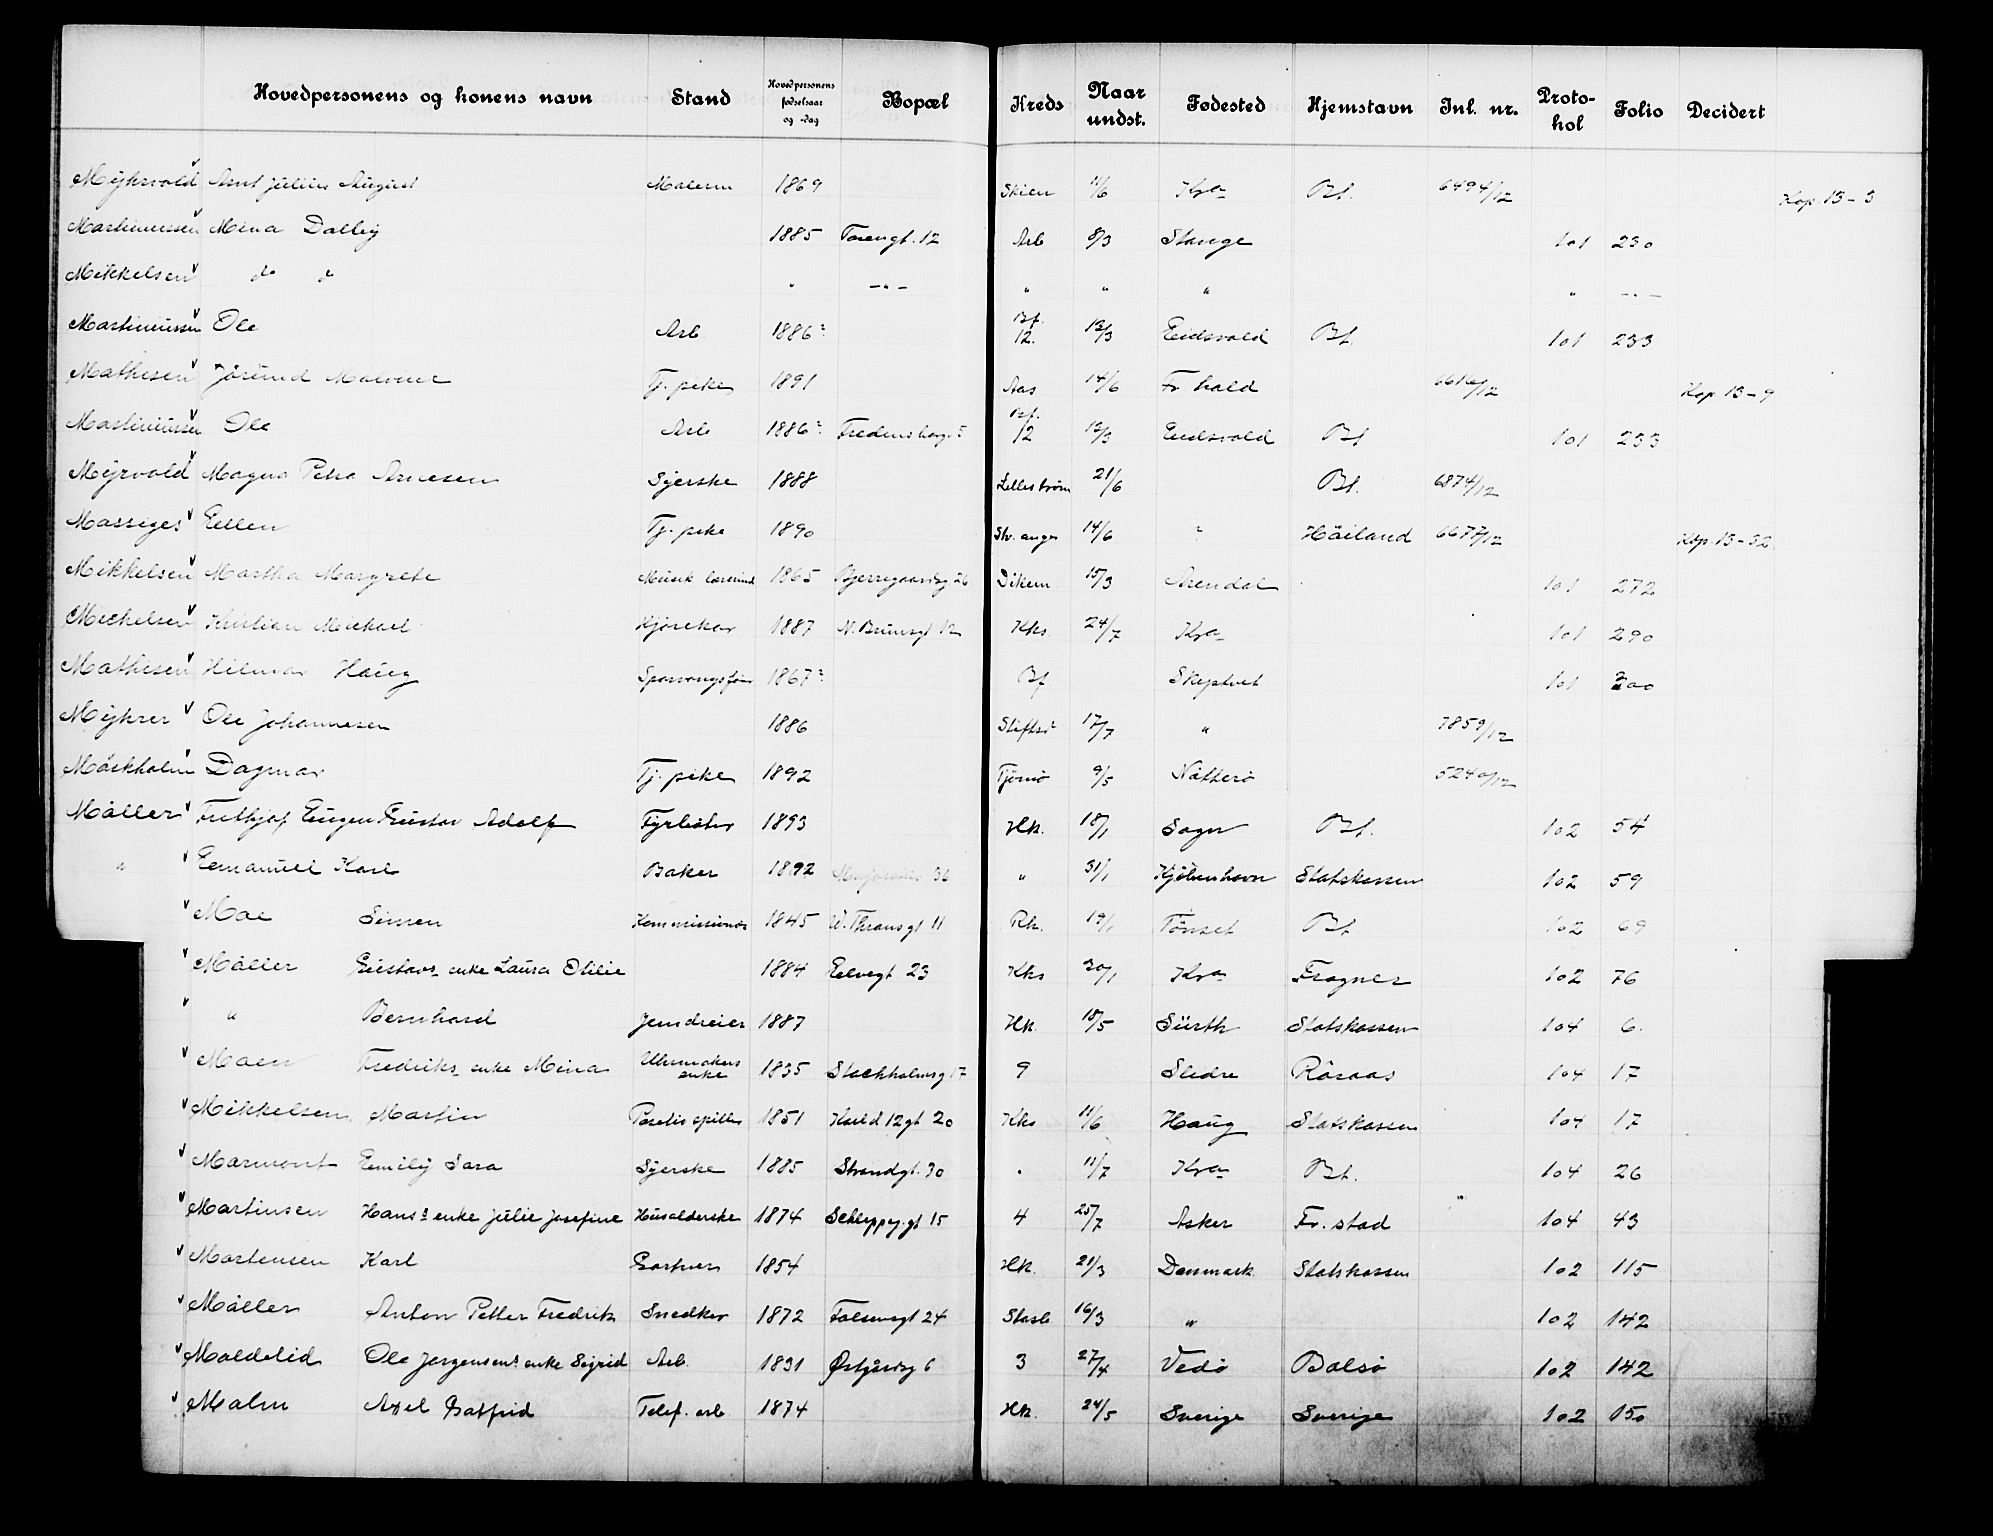 Hovedpersonens og konens navn Stand Hovedpersonens fødselsaar og -dag Bopæl Kreds Naar undst. Fødested Hjemstavn Inl. nr. Proto-kol Folio Decidert
Myhrvold Arnt Julius August Malerm 1869 Skien 11/6 Kra Bf. 6494/12 Kop. 13-3
Martinussen Mina Dalby 1885 Torengt. 12 Arb 8/3 Stange 101 230
Mikkelsen do do " -"- " " " " -"-
Martinussen Ole Arb 1886? Bf. 12. 13/3 Eidsvold Bf. 101 233
Mathisen Jørund Malvine Tj. pike 1891 Aas 14/6 Fr hald 6616/12 Kop. 13-9
Martinussen Ole Arb 1886? Fredensborgv 5 Bf. 12 13/3 Eidsvold Bf 101 233
Myrvold Magna Petra Arnesen Syerske 1888 Lillestrøm 21/6 Bf. 6874/12
Massiges Ellen Tj. pike 1890 Stv. anger 14/6 " Høiland 6677/12 Kop. 13-32
Mikkelsen Martha Margrete Musik lærerind 1865 Bjerregaardsg 26 Dikem 15/3 Arendal 101 272
Michelsen Kristian Mickael Kjørekar 1887 N. Brunsgt 12 Kks 24/7 Kra 101 290
Mathisen Hilmar Haug Sporvongsfør 1867? Bf Skiptvet 101 300
Myhrer Ole Johannesen 1886 Stiftsd 17/7 " 7859/12
Møskholm Dagmar Tj. pike 1892 Tjømø 9/5 Nøtterø 5240/12
Møller Frithjof Eugen Gustav Adolf Fyrbøter 1893 Hk. 18/1 Sogn Bf. 102 54
" Emanuel Karl Baker 1892 36 " 31/1 Kjøbenhavn Statskassen 102 59
Moe Simen Kommissionær 1845 W. Thransgt 11 Rk. 19/1 Tønset Bf 102 69
Møller Gustavs enke Laura Otilie 1884 Eelvegt 23 Kks 30/1 Kra Frogner 102 76
" Bernhard Jerndreier 1887 Hk. 18/5 Sürth Statskassen 104 6.
Moen Fredriks enke Mina Uhrmakers enke 1835 Stockholmsg 17 9 Slidre Røraas 104 17
Mikkelsen Martin Positiv spiller 1851 Karl d 12 gt 20 Kks 11/6 Haug Statskassen 104 17
Marmont Emily Sara Syerske 1885 Strandgt. 30 " 11/7 Kra Bf. 104 26
Martinsen Hans's enke Julie Josefine Husolderske 1874 Schleppegt 15 4 25/7 Asker Fr. stad 104 43
Mortensen Karl Gartner 1854 Hk. 21/3 Danmark Statskassen 102 115
Møller Anton Petter Fredrik Snedker 1872 Falsensgt 24 Starb 16/3 " 102 142
Moldelid Ole Jørgensens enke Sigrid Arb. 1831 Østgaardsg 6 3 27/4 Vedø Bolsø 102 142
Malm Axel Gotfrid Telef. arb 1874 Hk. 24/5 Sverige Sverige 102 150